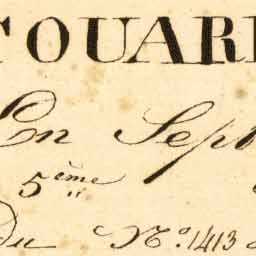 TOUARE
En Sept
5ème
du No. 1413